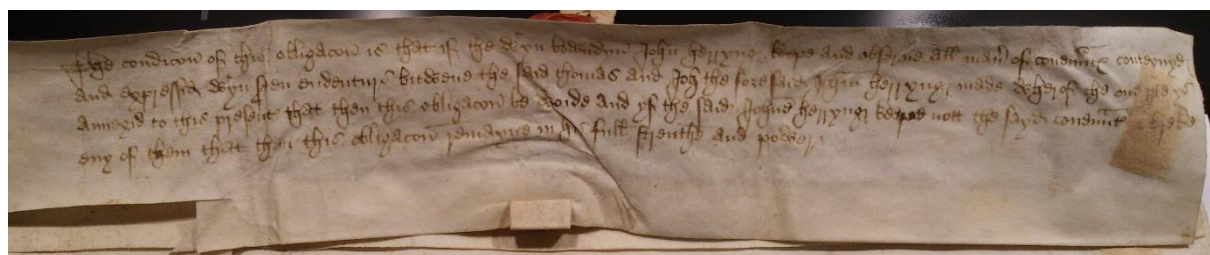 The condicon of this obligacon is that if the w'tyn bowndyn John herryng kepe and observe all man' of covenntz conteyned
and expressid w'tyn seen endenturs bitwene the said thomas and the foresaid John herryng made wherof the one
annexid to this present that then this obligacon be voide and yf the said Johne herryng kepe nott the sayd covennt breke
eny of them that then this obligacon remayne in his full strenthe and power